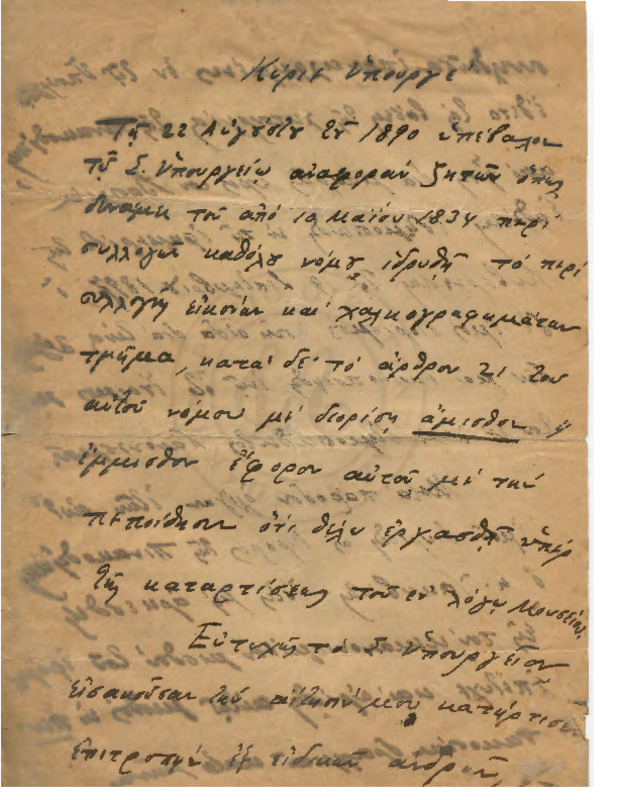 Κύριε Ὑπουργέ
Τῇ 22 Αὐγούστου τοῦ 1890 ὑπέβαλον
τῷ Σ. Ὑπουργείῳ ἀναφορὰν ζητῶν ὅπως
δυνάμει τοῦ ἀπὸ 10 Μαΐου 1834 περὶ
συλλογῶν καθόλου νόμου ἱδρυθῇ τὸ περὶ
συλλογῆς εἰκόνων καὶ χαλκογραφημάτων
τμῆμα, κατὰ δὲ τὸ ἄρθρον 21 τοῦ
αὐτοῦ νόμου μὲ διορίσῃ ἄμισθον ἢ
ἔμμισθον ἔφορον αὐτοῦ μὲ τὴν
πεποίθησιν ὅτι θέλω ἐργασθῇ ὑπὲρ
τῆς καταρτίσεως τοῦ ἐν λόγῳ Μουσείου.
Εὐτυχῶς τὸ Σ. Ὑπουργεῖον
εἰσακοῦσαν τὴν αἴτησίν μου κατήρτισεν
ἐπιτροπὴν ἐξ εἰδικῶν ἀνδρῶν,